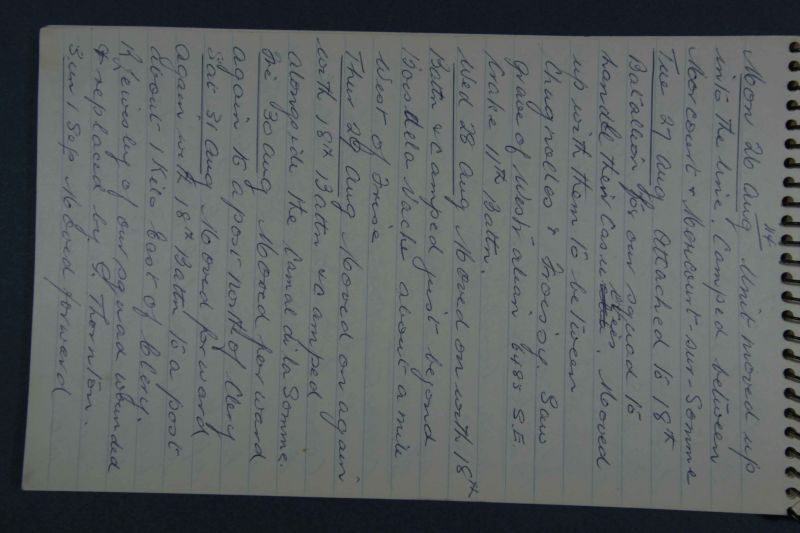 114
Mon 26 Aug Unit moved up
into the line. Camped between
Morcourt & Mericourt-sur-Somme
Tue 27 Aug Attached to 18th
Batallion for our squad to
handle their casualties. Moved
up with them to between
Chuignolles & Froissy. Saw
grave of West'ralian
Drake 11th Battn.
Wed 28 Aug Moved on with 18th
Battn & camped just beyond
Bois de la Vache about a mile
West of Frise
Thur 29 Aug Moved on again
with 18th Battn & camped
alongside the Canal di la Somme.
Fri 30 Aug Moved forward
again to a post north of Clery
Sat 31 Aug Moved forward
again with 18th Battn to a post
about 1 Kilo East of Clery.
of our squad wounded
& replaced by G. Thornton.
Sun 1 Sep Moved forward